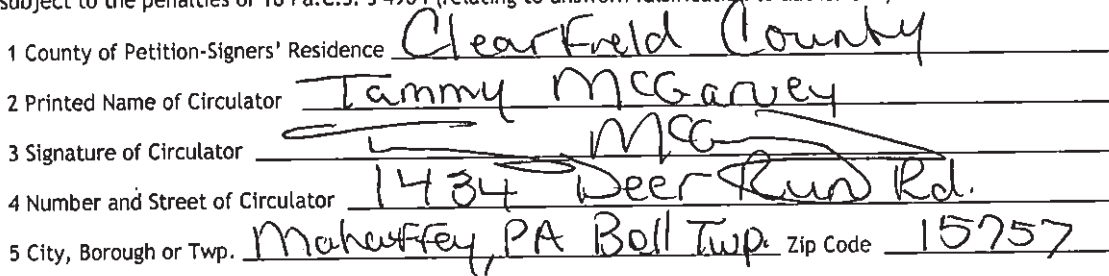 subject to the penalties of 18 Pa.C.S. § 4904 (relating to unsworn falsification to
1 County of Petition-Signers' Residence Clearfield County
2 Printed Name of Circulator Tammy McGarvey
3 Signature of Circulator
4 Number and Street of Circulator 1434 Deer Run Rd.
5 City, Borough or Twp. Mahaffey, PA Bell Twp. Zip Code 15757